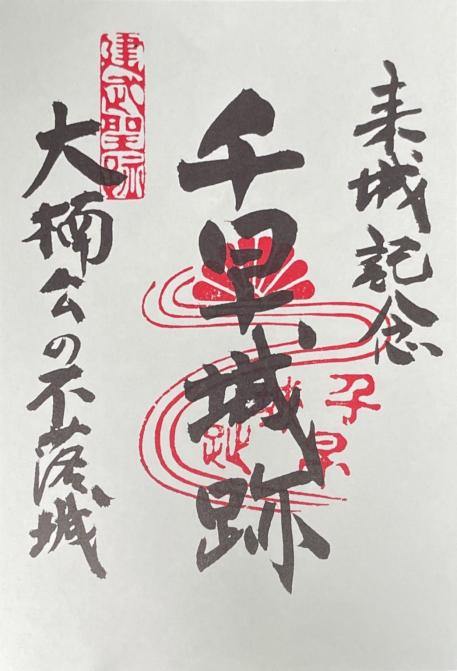 来城記念
千早城跡
千早
大楠公の不落城
建武聖跡